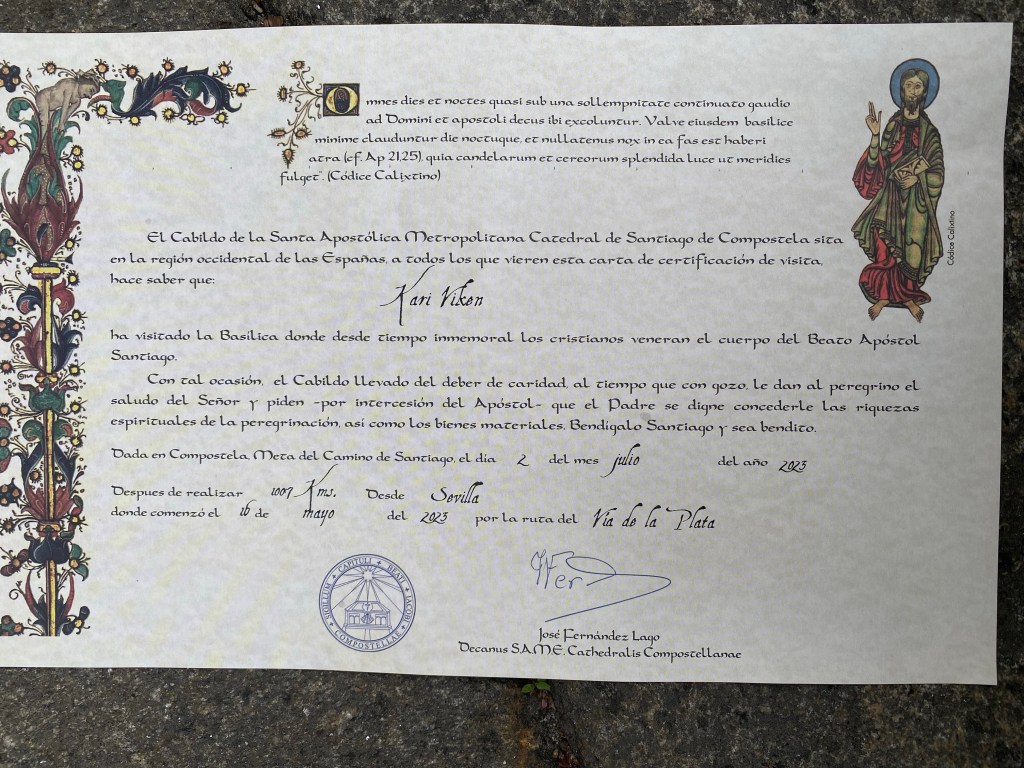 Omnes dies et noctes quasi sub una sollempnitate continuato gaudio
ad Domini et apostoli decus ibi excoluntur. Valve eiusdem basilice
minime clauduntur die noctuque, et nullatenus nox in ea fas est haberi
atra (cf. Ap 21,25), quia candelarum et cereorum splendida luce ut meridies
fulget". (Códice Calixtino)
Códice Calixtino
El Cabildo de la Santa Apostólica Metropolitana Catedral de Santiago de Compostela sita
en la región occidental de las Españas, a todos los que vieren esta carta de certificación de visita,
hace saber que:
Kari Viken
ha visitado la Basílica donde desde tiempo inmemorial los cristianos veneran el cuerpo del Beato Apóstol
Santiago.
Con tal ocasión, el Cabildo llevado del deber de caridad, al tiempo que con gozo, le dan al peregrino el
saludo del Señor y piden -por intercesión del Apóstol- que el Padre se digne concederle las riquezas
espirituales de la peregrinación, asi como los bienes materiales. Bendígalo Santiago y sea bendito.
Dada en Compostela, Meta del Camino de Santiago, el dia 2 del mes julio del año 2023
Despues de realizar 1007 Kms. Desde Sevilla
donde comenzó el 16 de mayo del 2023 por la ruta del Vía de la Plata
SIGILLUM CAPITULI BEATI IACOBI COMPOSTELLAE
José Fernández Lago
Decanus S.A.M.E. Cathedralis Compostellanae